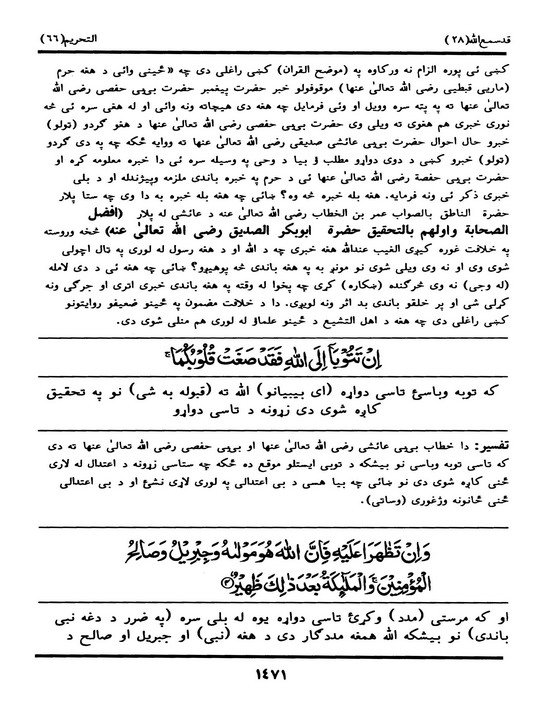 قدسمع الله(٢٨) التحريم(٦٦)
کښی ئی پوره الزام نه ورکاوه په (موضح القران) کښی راغلی دی چه «ځینی وائی د هغه حرم
(ماریی قبطیی رضی الله تعالیٰ عنها) موقوفولو خبر حضرت پیغمبر حضرت بی‌بی حفصی رضی الله
تعالیٰ عنها ته په پته سره وویل او وئی فرمایل چه هغه دی هیچاته ونه وائی او له هغی سره ئی څه
نوری خبری هم هغوی ته ویلی وی حضرت بی‌بی حفصی رضی الله تعالیٰ عنها د هغو گردو (تولو)
خبرو حال احوال حضرت بی‌بی عائشی صدیقی رضی الله تعالیٰ عنها ته ووایه ځکه چه په دی گردو
(تولو) خبرو کښی د دوی دواړو مطلب ؤ بیا د وحی په وسیله سره ئی دا خبره معلومه کړه او
حضرت بی‌بی حفصة رضی الله تعالیٰ عنها ئی د حرم په خبره باندی ملزمه وپیژندله او د بلی
خبری ذکر ئی ونه فرمایه. هغه بله خبره څه وه؟ ښائی چه هغه بله خبره به دا وی چه ستا پلار
حضرة الناطق بالصواب عمر بن الخطاب رضی الله تعالیٰ عنه د عائشی له پلار (افضل
الصحابة واولهم بالتحقیق حضرة ابوبکر الصدیق رضی الله تعالیٰ عنه) څخه وروسته
په خلافت غوره کیږی الغیب عندالله هغه خبری چه د الله او د هغه رسول له لوری په تال اچولی
شوی وی او نه وی ویلی شوی نو مونږ به په هغه باندی څه پوهیږو؟ ښائی چه هغه ئی د دی لامله
(له وجی) نه وی څرگنده (ښکاره) کړی چه پخوا له وقته په هغه باندی خبری اتری او جرگی ونه
کړلی شی او پر خلقو باندی بد اثر ونه لویږی. دا د خلافت مضمون په ځینو ضعیفو روایتونو
کښی راغلی دی چه هغه د اهل التشیع د ځینو علماؤ له لوری هم منلی شوی دی.
اِنْ تَتُوْبَآ اِلَى اللّٰهِ فَقَدْ صَغَتْ قُلُوْبُكُمَا ۚ
که توبه وباسئ تاسی دواړه (ای بیبیانو) الله ته (قبوله به شی) نو په تحقیق
کاږه شوی دی زړونه د تاسی دواړو
تفسیر: دا خطاب بی‌بی عائشی رضی الله تعالیٰ عنها او بی‌بی حفصی رضی الله تعالیٰ عنها ته دی
که تاسی توبه وباسی نو بیشکه د توبی ایستلو موقع ده ځکه چه ستاسی زړونه د اعتدال له لاری
ځنی کاږه شوی دی نو ښائی چه بیا هسی د بی اعتدالی په لوری لاړی نشئ او د بی اعتدالی
ځنی ځانونه وژغوری (وساتی).
وَاِنْ تَظٰهَرَا عَلَيْهِ فَاِنَّ اللّٰهَ هُوَ مَوْلٰىهُ وَجِبْرِيْلُ وَصَالِحُ
الْمُؤْمِنِيْنَ ۚ وَالْمَلٰٓئِكَةُ بَعْدَ ذٰلِكَ ظَهِيْرٌ ﴿٤﴾
او که مرستی (مدد) وکړئ تاسی دواړه یوه له بلی سره (په ضرر د دغه نبی
باندی) نو بیشکه الله همغه مددگار دی د هغه (نبی) او جبریل او صالح د
١٤٧١